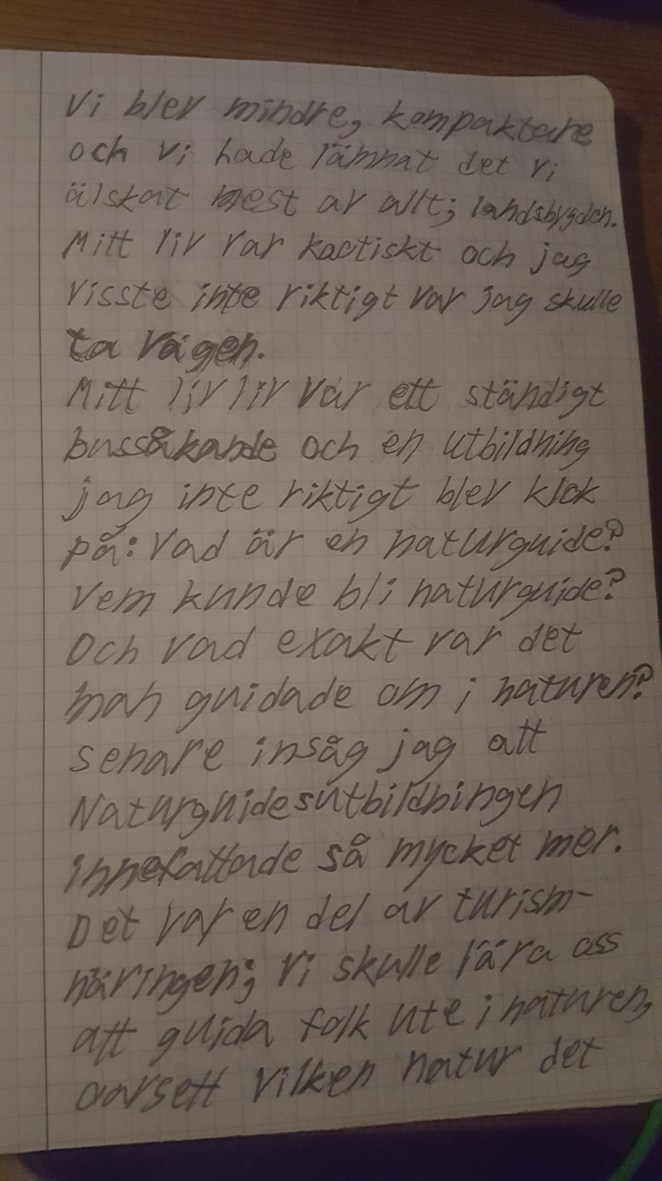 Vi blev mindre, kompaktare
och vi hade lämnat det vi
älskat mest av allt; landsbygden.
Mitt liv var kaotiskt och jag
visste inte riktigt var jag skulle
ta vägen.
Mitt liv liv var ett ständigt
bussåkande och en utbildning
jag inte riktigt blev klok
på: Vad är en naturguide?
Vem kunde bli naturguide?
Och vad exakt var det
man guidade om i naturen?
Senare insåg jag att
Naturguidesutbildningen
innefattade så mycket mer.
Det var en del av turism-
näringen; vi skulle lära oss
att guida folk ute i naturen,
oavsett vilken natur det